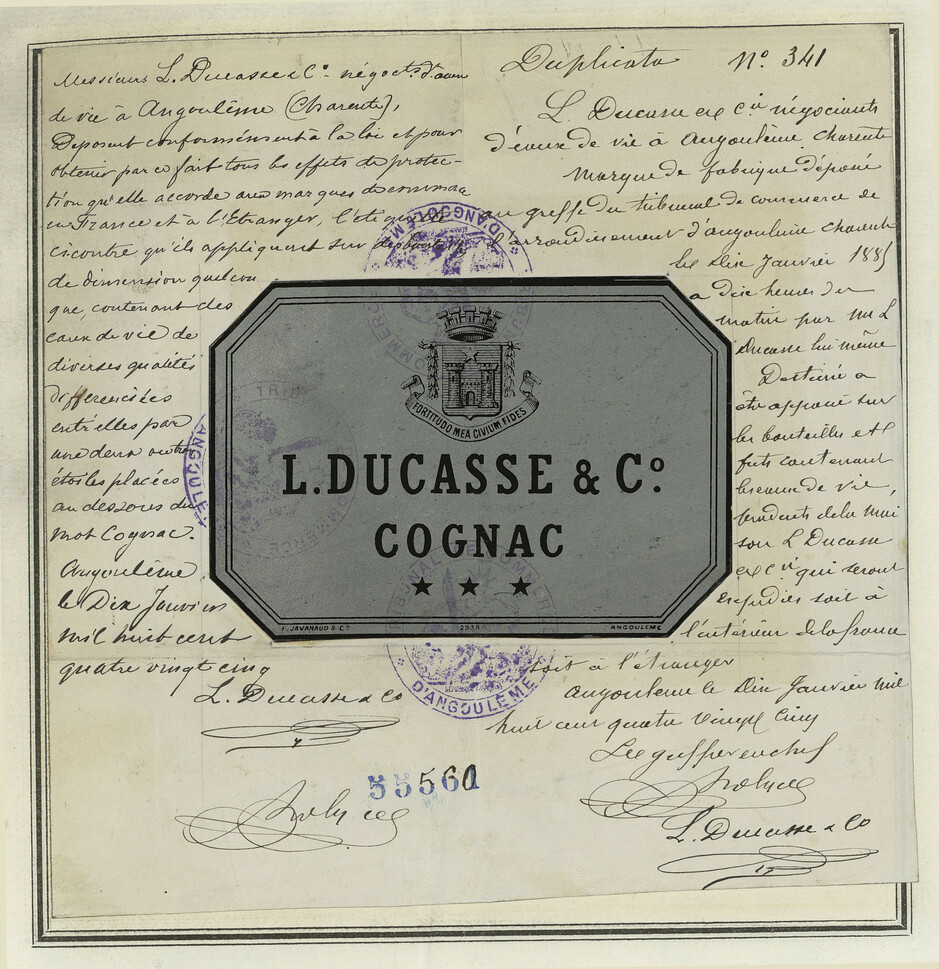 Messieurs L. Ducasse & Cº négocts. d'eau
de vie à Angoulême (Charente),
Déposent conformément à la loi et pour
obtenir par ce fait tous les effets de protec-
tion qu'elle accorde aux marques de commerce
en France et à l'Etranger, l'étiquette
ci contre qu'ils appliquent sur des bouts.
de dimension quelcon
que, contenant des
eaux de vie de
diverses qualités
differenciées
entr'elles par
une deux ou trois
étoiles placées
au dessous du
mot Cognac.
Angoulême
le Dix Janvier
mil huit cent
quatre vingt cinq
L. Ducasse & Co
Duplicata Nº 341
L. Ducasse et Cie négociants
d'eaux de vie à Angoulême, Charente
Marque de fabrique déposée
au greffe du tribunal de commerce de
l'arrondissement d'angoulême charente
le Dix Janvier 1885
a dix heures du
matin par M. L
Ducasse lui même
Destinée a
être apposée sur
les bouteilles et
futs contenant
les eaux de vie,
produits de la mai
son L Ducasse
et Cie qui seront
expédiés soit à
l'intérieur de la france
soit à l'étranger
angouleme le Dix Janvier mil
huit cent quatre vingt cinq
Le greffier en chef
L. Ducasse & Co
FORTITUDO MEA CIVIUM FIDES
L. DUCASSE & Cº
COGNAC
★ ★ ★
F. JAVANAUD & Cº 2938 ANGOULÊME
TRIBUNAL DE COMMERCE
D'ANGOULÊME
55561